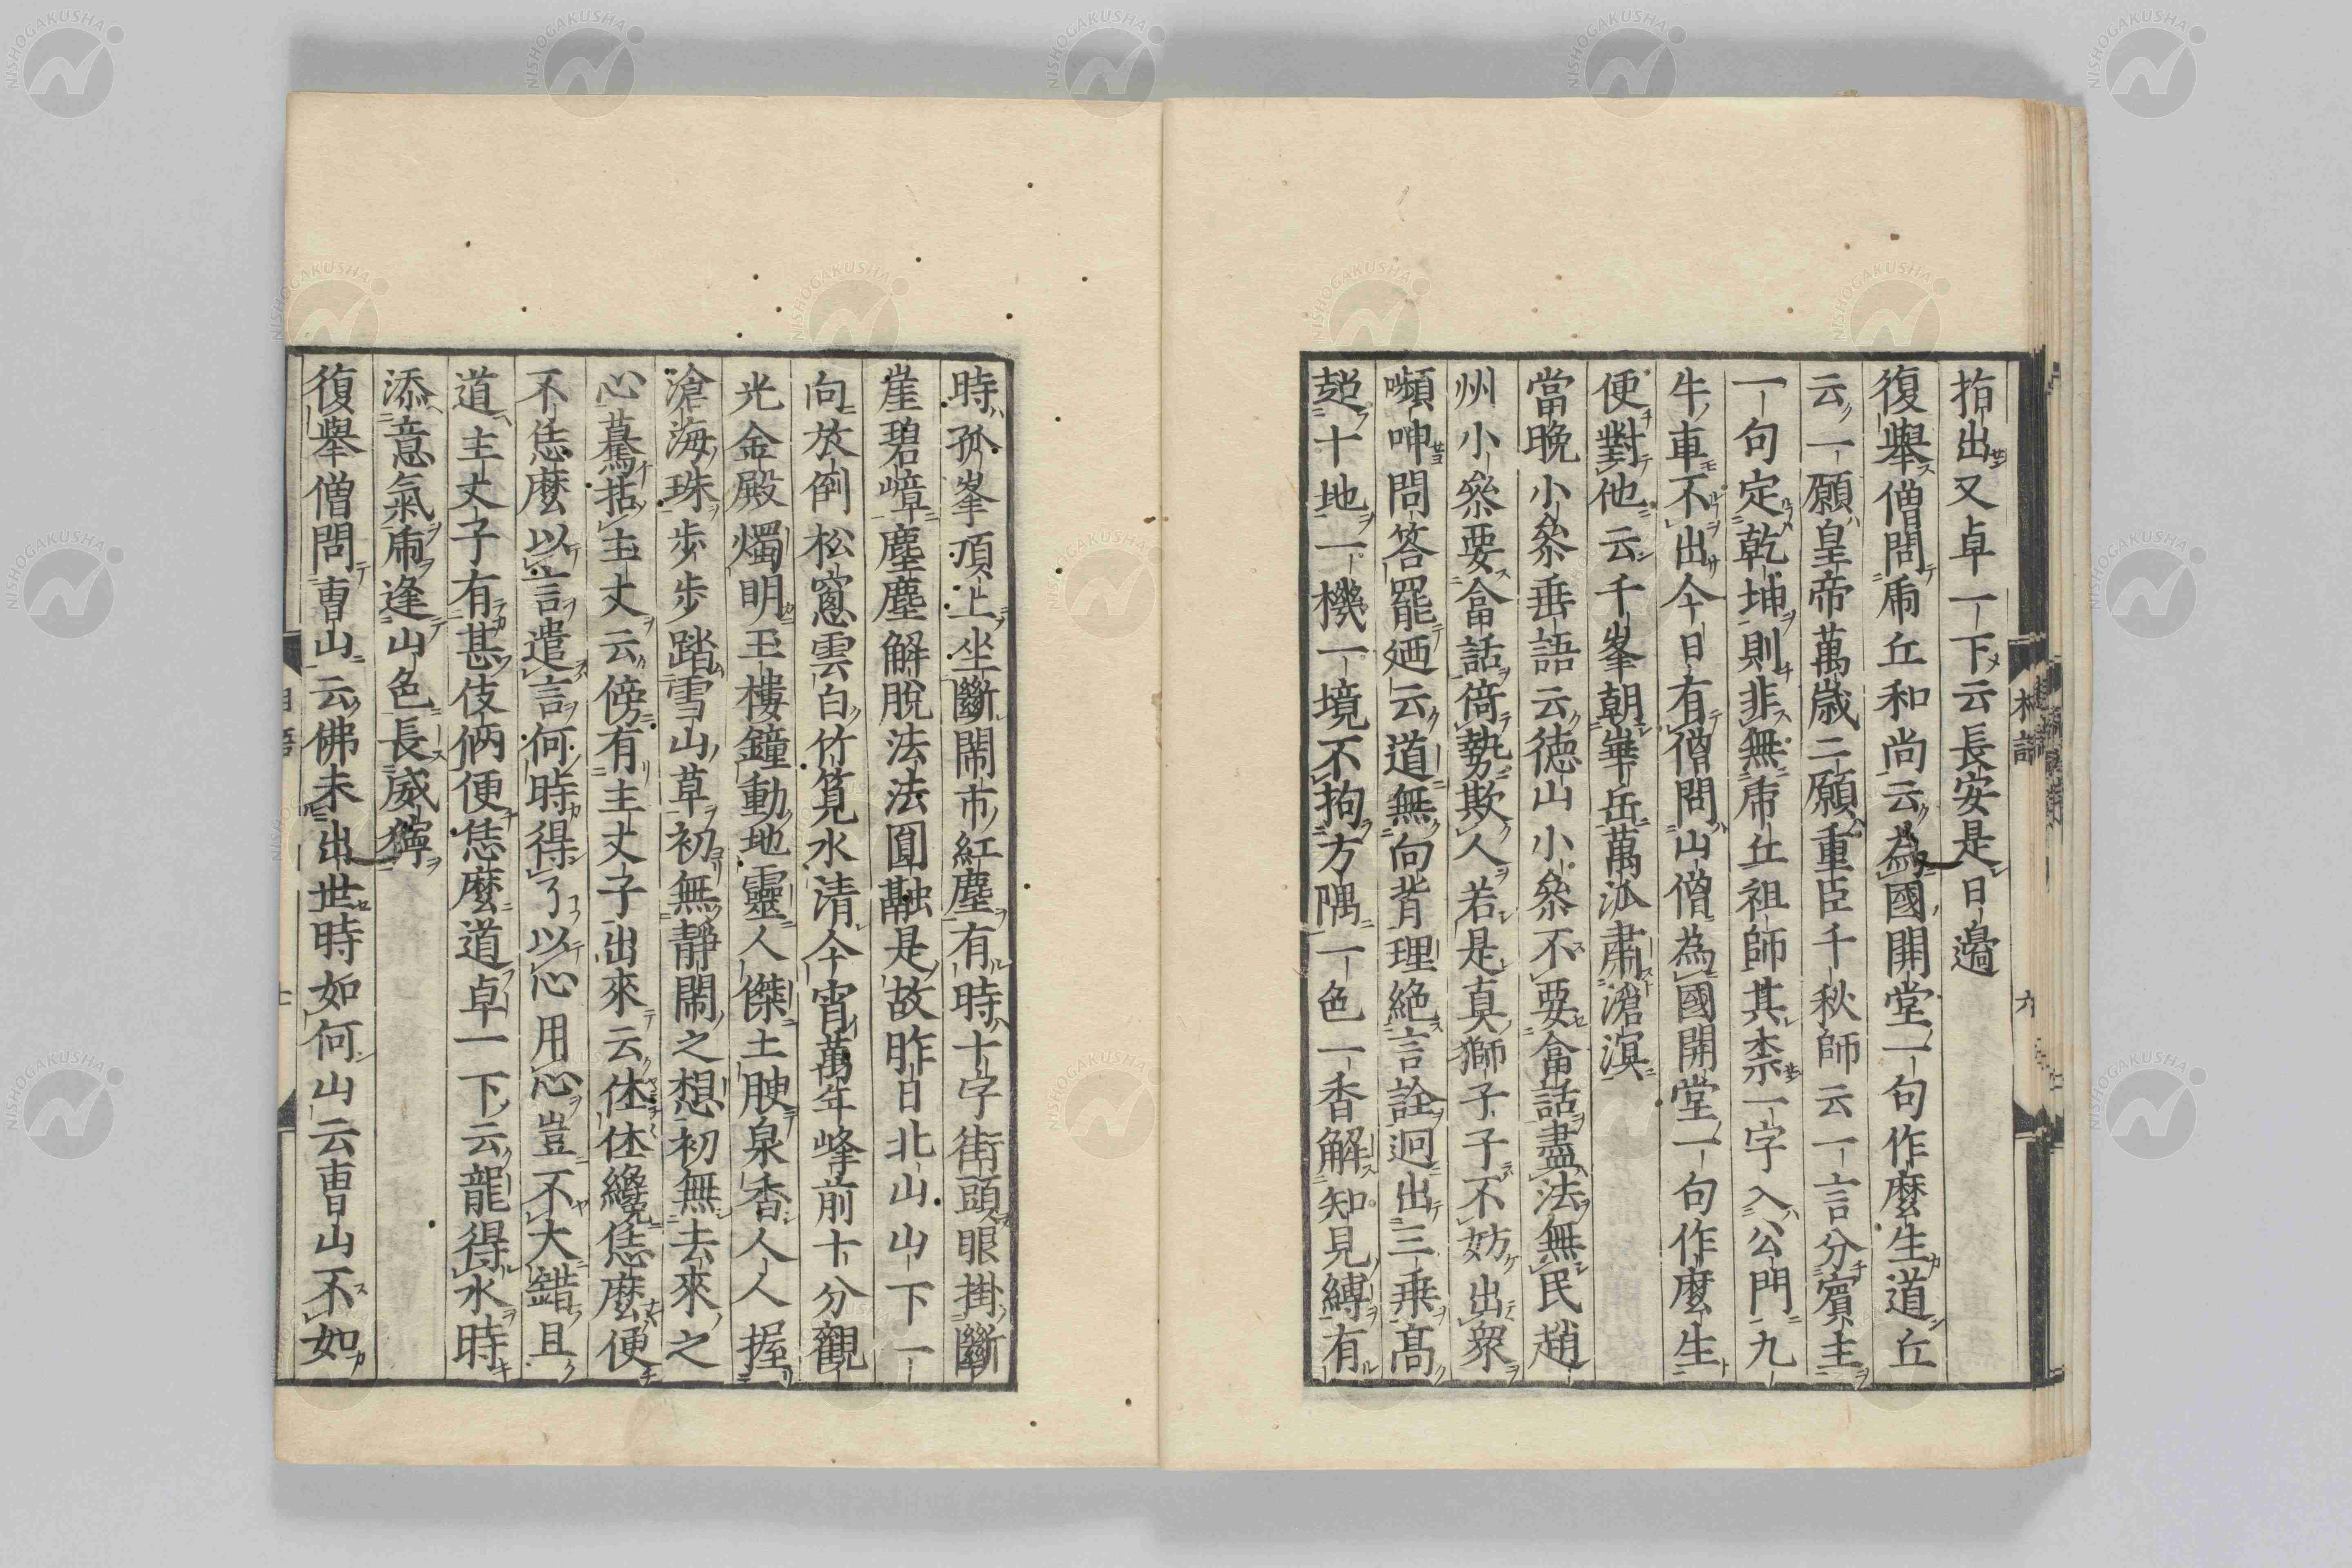 指出又卓一下云長安是日邊
復舉僧問虎丘和尚云為國開堂一句作麼生道丘
云一願皇帝萬歲二願重臣千秋師云一言分賓主
一句定乾坤則非無虎丘祖師其柰一字入公門九
牛車不出今日有僧問山僧為國開堂一句作麼生
便對他云千峯朝華岳萬派肅滄溟
當晚小參垂語云德山小參不要畣話盡法無民趙
州小參要畣話倚勢欺人若是真獅子子不妨出衆
嚬呻問答罷廼云道無向背理絶言詮迥出三乗髙
超十地一機一境不拘方隅一色一香解知見縛有
時孤峯頂上坐斷閙市紅塵有時十字街頭眼掛斷
崖碧嶂塵塵解脱法法圓融是故昨日北山山下一
向放倒松窓雲白竹筧水清今宵萬年峰前十分觀
光金殿燭明玉樓鐘動地靈人傑土腴泉香人人握
滄海珠步步踏雪山草初無靜閙之想初無去來之
心驀拈主丈云傍有主丈子出來云休休纔恁麼便
不恁麼以言遣言何時得了以心用心豈不大錯且
道主丈子有甚伎倆便恁麼道卓一下云龍得水時
添意氣虎逢山色長威獰
復舉僧問曹山云佛未出世時如何山云曹山不如
NISHOGAKUSHA